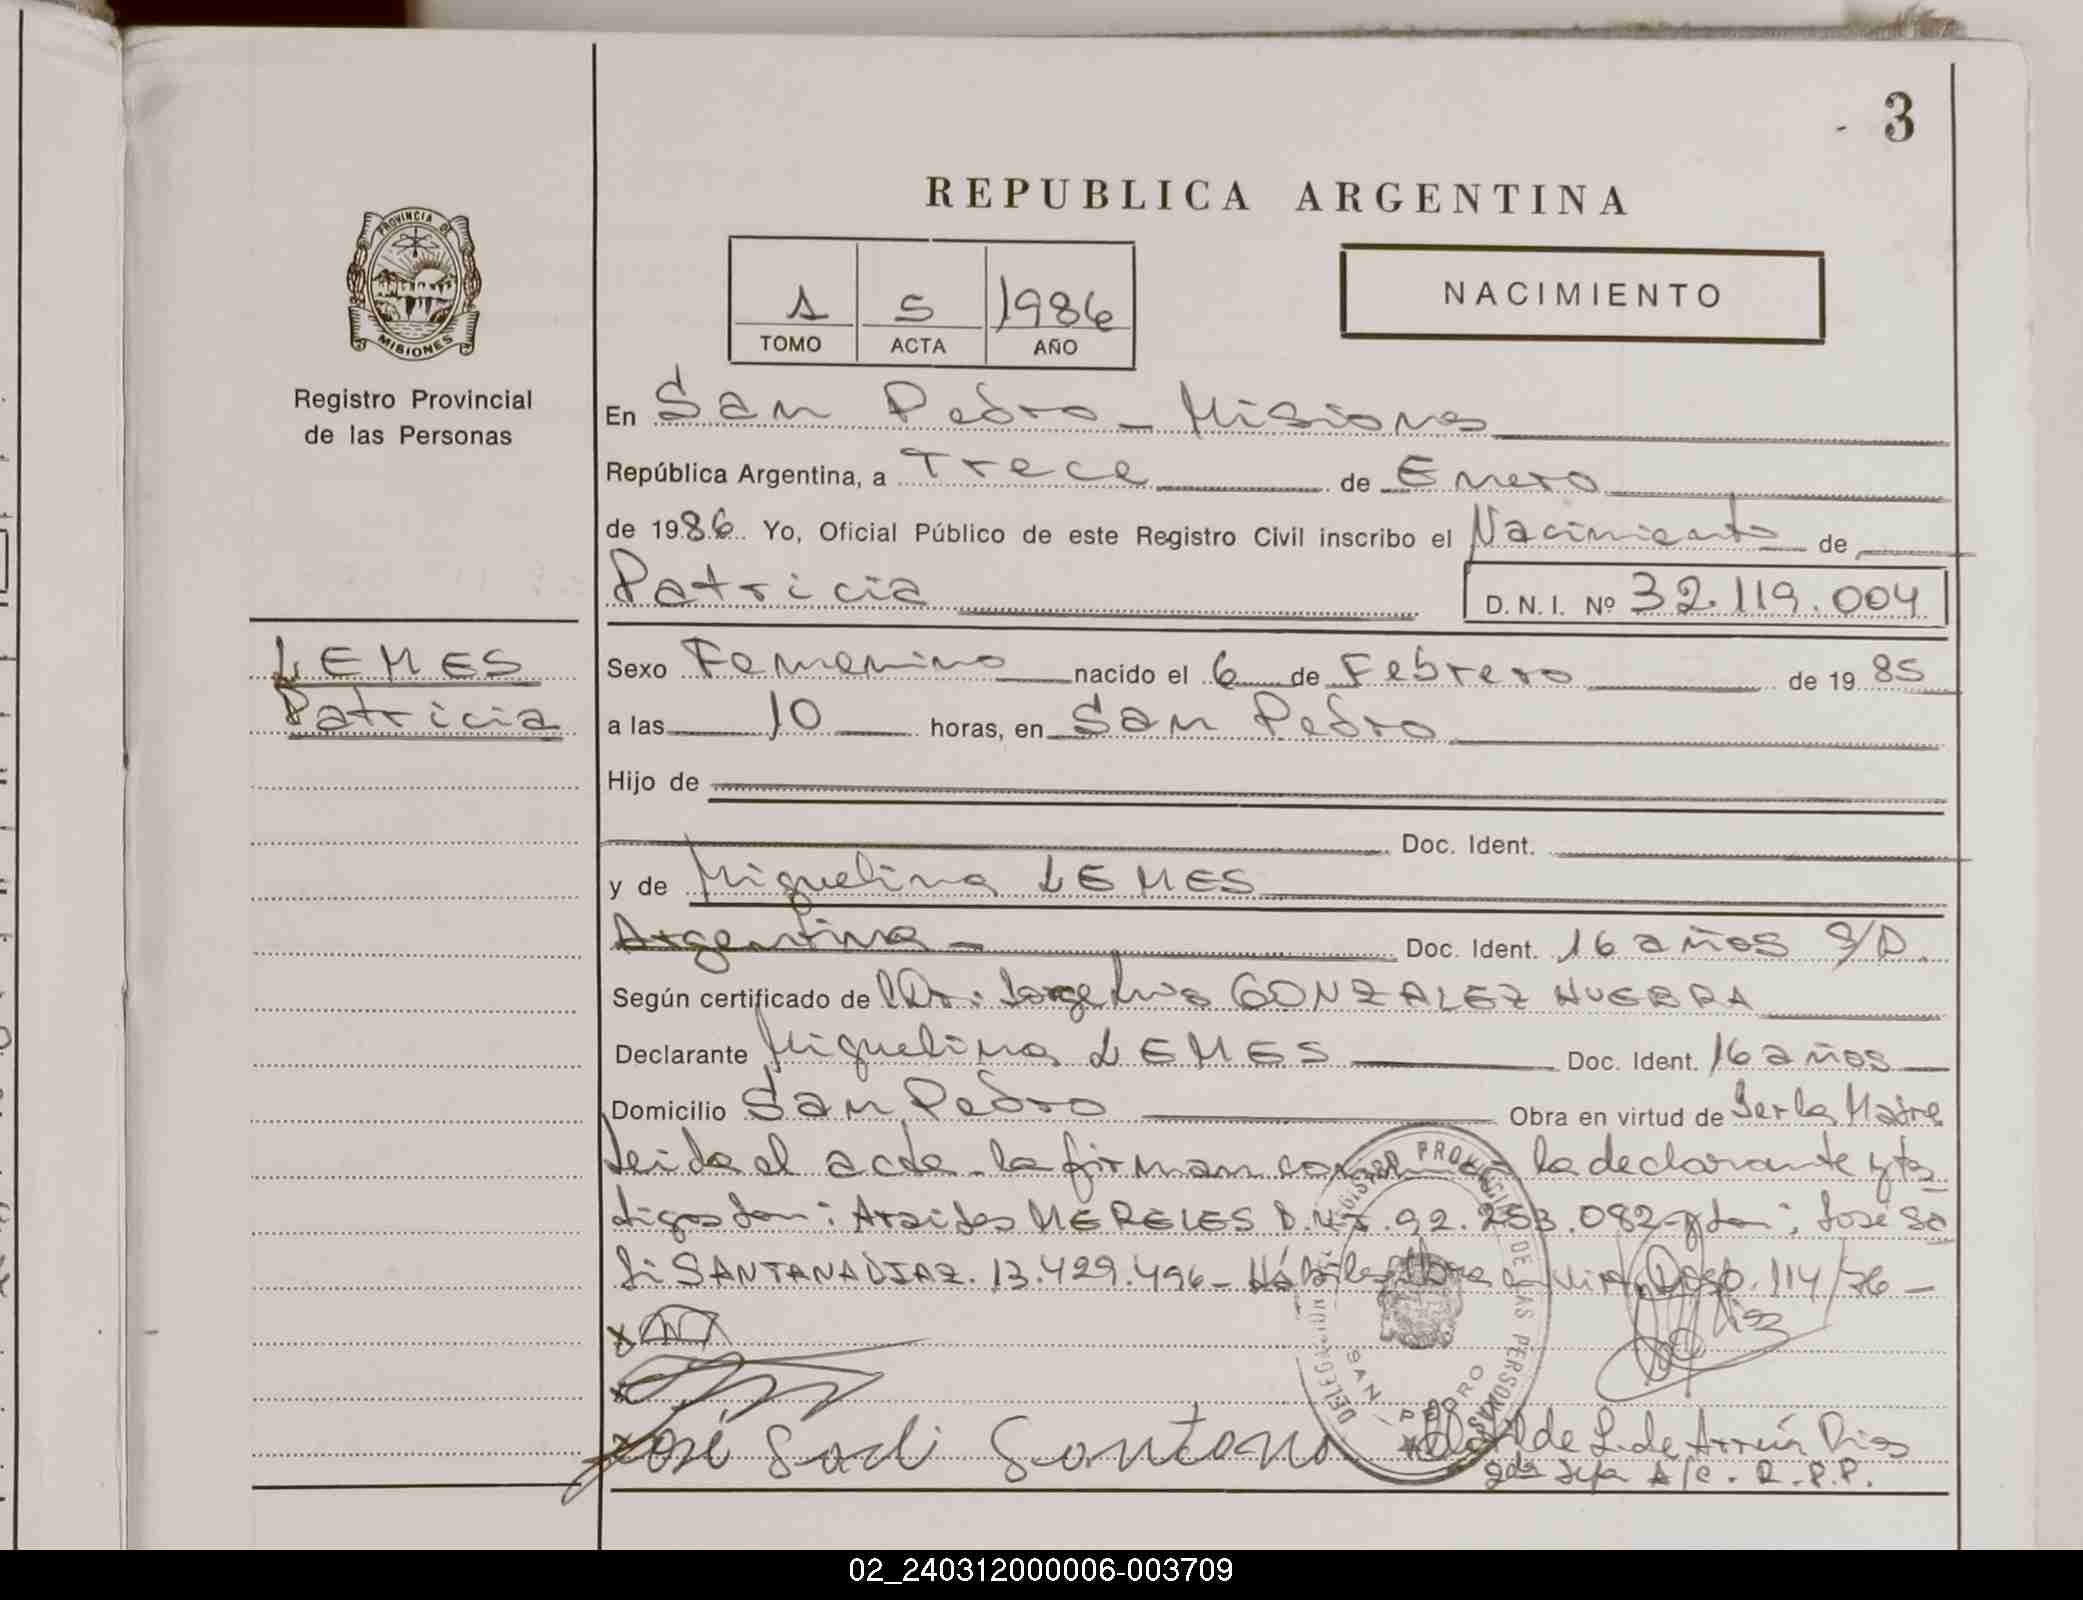 3
REPUBLICA ARGENTINA
PROVINCIA DE
MISIONES
Registro Provincial
de las Personas
1 5 1986
TOMO ACTA AÑO
NACIMIENTO
En San Pedro - Misiones
República Argentina, a Trece de Enero
de 1986. Yo, Oficial Público de este Registro Civil inscribo el Nacimiento de
Patricia D.N.I. Nº 32.119.004
LEMES
Patricia
Sexo Femenino nacido el 6 de Febrero de 1985
a las 10 horas, en San Pedro
Hijo de
Doc. Ident.
y de Miguelina LEMES
Argentina - Doc. Ident. 16 años S/D.
Según certificado de Dr. Jorge Luis GONZALEZ NUEBRA
Declarante Miguelina LEMES Doc. Ident. 16 años
Domicilio San Pedro Obra en virtud de Ser la Madre
Leida el acta la firman la declarante y tes
tigos Don: MERELES D.N.I. 92.253.082 y don: José Sa
di SANTANA DIAZ. 13.429.496 - Hábiles 114/76 -
José Sadi Santana
DELEGACION REGISTRO PROVINCIAL DE LAS PERSONAS
SAN PEDRO
L. de Arrúa Dias
2da Jefa A/C. R.P.P.
02_240312000006-003709